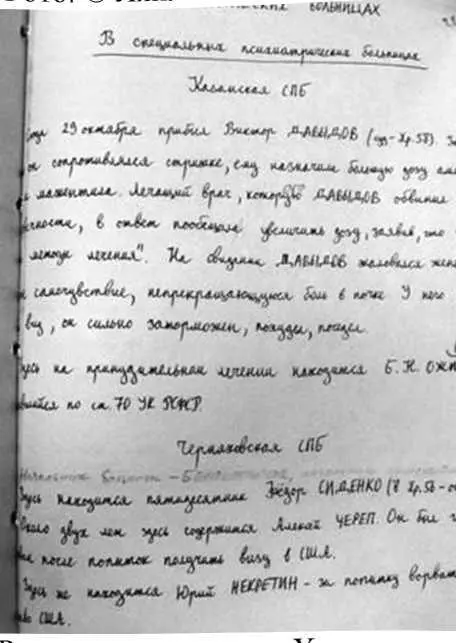 БОЛЬНИЦАХ
В специальных психиатрических больницах
Казанская СПБ
Сюда 29 октября прибыл Виктор ДАВЫДОВ (суд - Хр.58). За
он сопротивлялся стрижке, ему назначили большую дозу
и мажептила. Лечащий врач, которую ДАВЫДОВ обвинил
в ответ пообещала увеличить дозу, заявив, что
методы лечения". На свидании ДАВЫДОВ жаловался жене
самочувствие, непрекращающуюся боль в почке. У него
вид, он сильно заторможен, похудел, поседел.
Здесь на принудительном лечении находится Б. К.
по ст. 70 УК РСФСР.
Черняховская СПБ
Здесь находится пятидесятник Фёдор СИДЕНКО (Хр.56
Около двух лет здесь содержится Алексей ЧЕРЕП. Он был
после попыток получить визу в США.
Здесь же находится Юрий НЕКРЕТИН - за попытку
США.